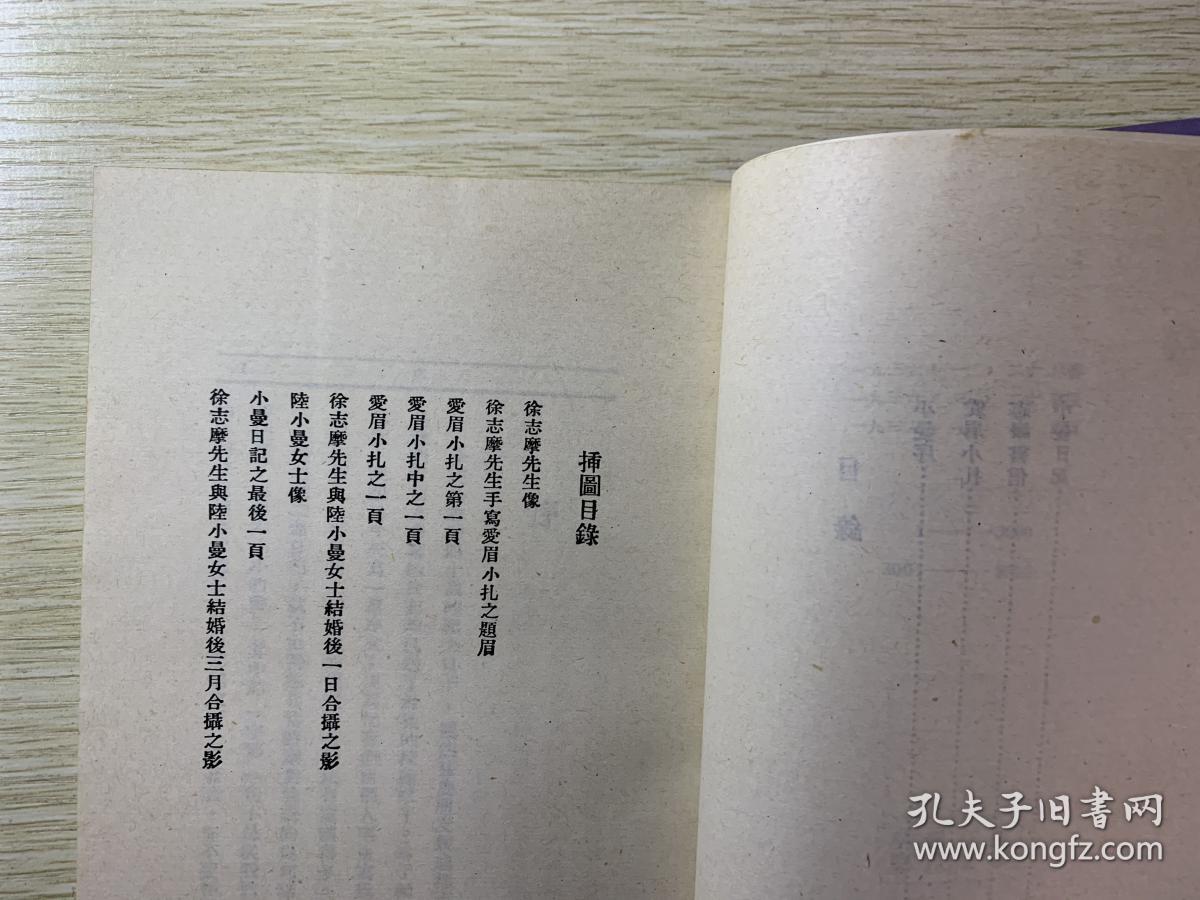 揷圖目錄
徐志摩先生像
徐志摩先生手寫愛眉小扎之題眉
愛眉小扎之第一頁
愛眉小扎中之一頁
愛眉小扎之一頁
徐志摩先生與陸小曼女士結婚後一日合攝之影
陸小曼女士像
小曼日記之最後一頁
徐志摩先生與陸小曼女士結婚後三月合攝之影
孔夫子旧书网
www.kongfz.com